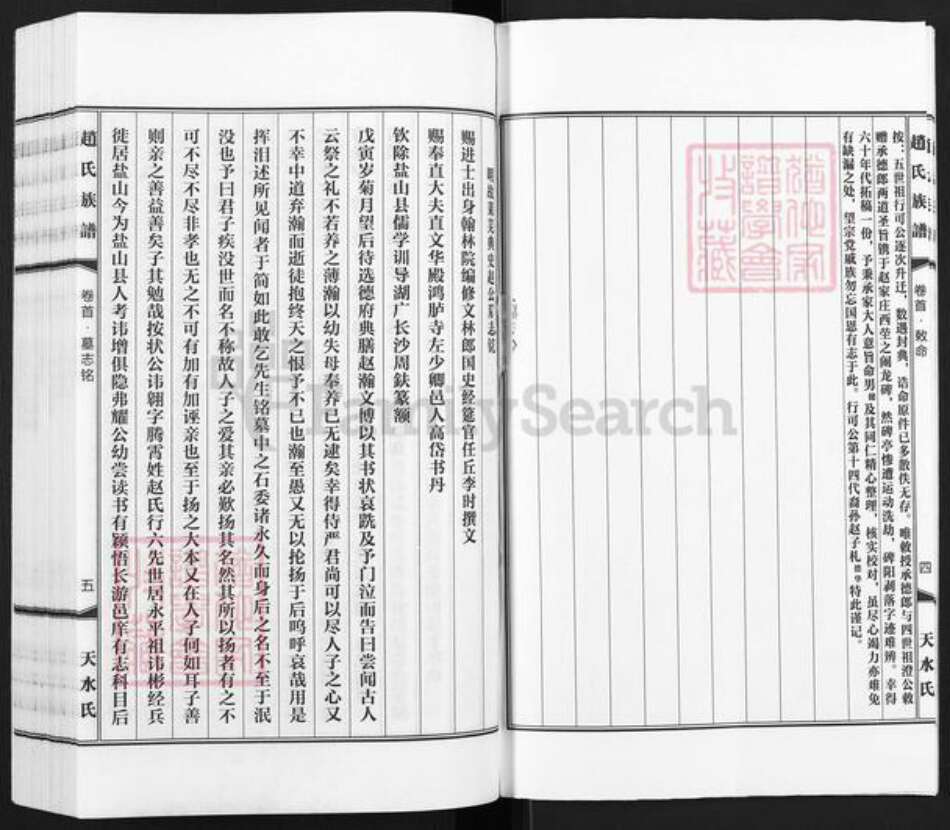 趙氏族譜
卷首·敕命
四
天水氏
按：五世祖行可公逐次升迁，数遇封典，诰命原件已多散佚无存。唯敕授承德郎与四世祖澄公敕
赠承德郎两道圣旨镌于赵家庄西茔之阁龙碑，然碑亭惨遭运动洗劫，碑阳剥落字迹难辨。幸得
六十年代拓稿一份，予秉承家大人意旨命男及其同仁精心整理，核实校对，虽尽心竭力亦难免
有缺漏之处，望宗党戚族勿忘国恩有志于此。行可公第十四代裔孙赵子札德华特此谨记。
谱学会
收藏
赵公墓志铭
赐进士出身翰林院编修文林郎国史经筵官任丘李时撰文
赐奉直大夫直文华殿鸿胪寺左少卿邑人高岱书丹
钦除盐山县儒学训导湖广长沙周鈇篆额
戊寅岁菊月望后待选德府典膳赵瀚文博以其书状哀跣及予门泣而告曰尝闻古人
云祭之礼不若养之薄瀚以幼失母奉养已无逮矣幸得侍严君尚可以尽人子之心又
不幸中道弃瀚而逝徒抱终天之恨予不已也瀚至愚又无以抡扬于后呜呼哀哉用是
挥泪述所见闻者于简如此敢乞先生铭墓中之石委诸永久而身后之名不至于泯
没也予曰君子疾没世而名不称故人子之爱其亲必欺扬其名然其所以扬者有之不
可不尽不尽非孝也无之不可有加有加诬亲也至于扬之大本又在人子何如耳子善
则亲之善益善矣子其勉哉按状公讳翱字腾霄姓赵氏行六先世居永平祖讳彬经兵
徙居盐山今为盐山县人考讳增俱隐弗耀公幼尝读书有颖悟长游邑庠有志科目后
趙氏族譜
卷首·墓志铭
五
天水氏
FamilySearch